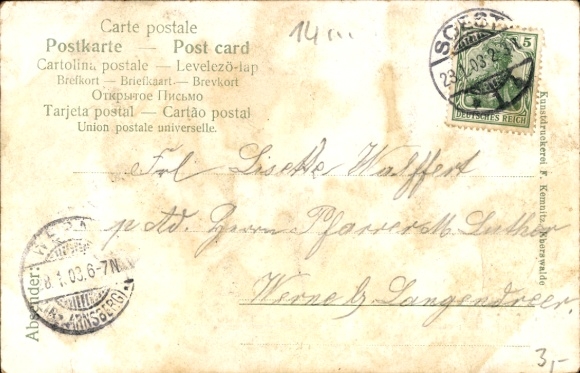 Carte postale
Postkarte — Post card
Cartolina postale — Levelező-lap
Brefkort — Briefkaart — Brevkort
Открытое Письмо
Tarjeta postal — Cartão postal
Union postale universelle.
14
SOEST
23.1.03.2-3N
5
DEUTSCHES REICH
Frl Lisette Walffert
p Ad. Herrn Pfarrer M. Luther
Werne b/ Langendreer.
WERNE
8.1.03.6-7N
ARNSBERG
Absender:
Kunstdruckerei F. Kemnitz, Eberswalde
3,-